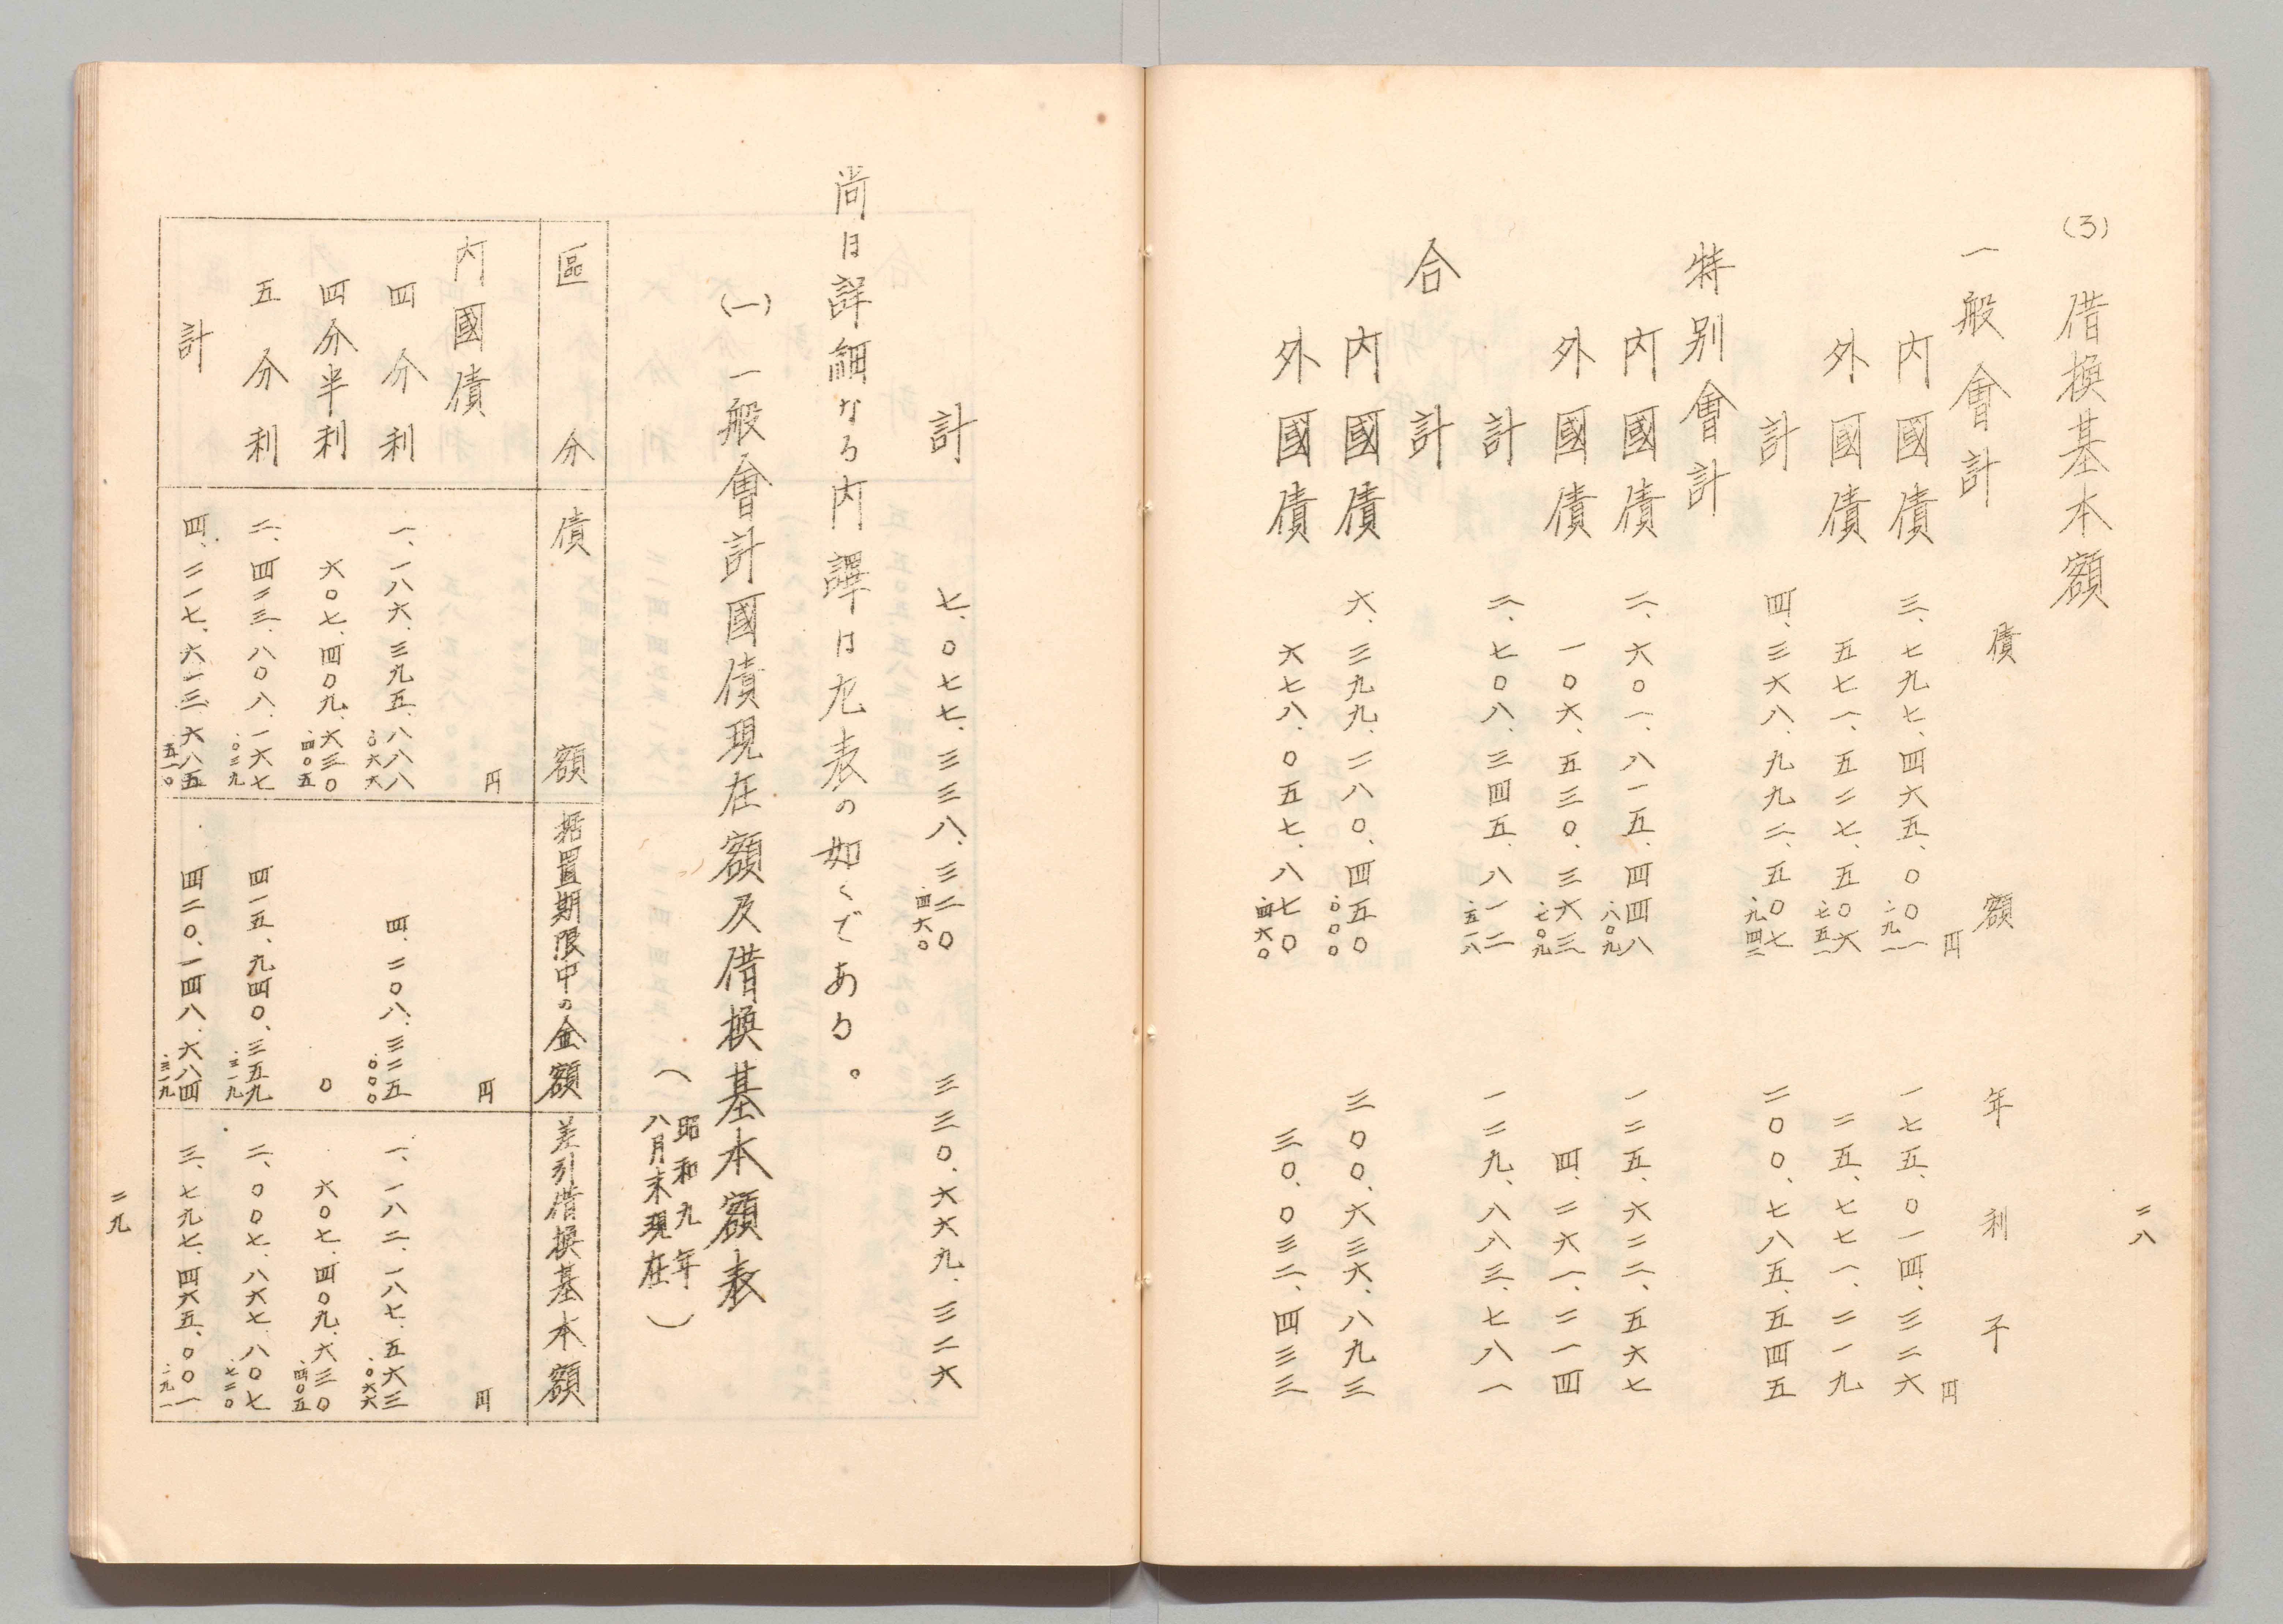 二八
(3) 借換基本額
債額 年利子
一般會計 円 円
内國債 三、七九七、四六五、〇〇一.一九一 一七五、〇一四、三二六
外國債 五七一、五二七、五〇六.七五一 二五、七七一、二一九
計 四、三六八、九九二、五〇七.九四二 二〇〇、七八五、五四五
特別會計
内國債 二、六〇一、八一五、四四八.八〇九 一二五、六二二、五六七
外國債 一〇六、五三〇、三六三.七〇九 四、二六一、二一四
計 二、七〇八、三四五、八一二.五一八 一二九、八八三、七八一
合計
内國債 六、三九九、二八〇、四五〇.〇〇〇 三〇〇、六三六、八九三
外國債 六七八、〇五七、八七〇.四六〇 三〇、〇三二、四三三
計 七、〇七七、三三八、三二〇.四六〇 三三〇、六六九、三二六
尚ほ詳細なる内譯は九表の如くである。
(一) 一般會計國債現在額及借換基本額表
(昭和九年八月末現在)
區分 債額 据置期限中の金額 差引借換基本額
内國債 円 円 円
四分利 一、一八六、三九五、八八八.〇六六 四、二〇八、三二五.〇〇〇 一、一八二、一八七、五六三.〇六六
四分半利 六〇七、四〇九、六三〇.四〇五 〇 六〇七、四〇九、六三〇.四〇五
五分利 二、四二三、八〇八、一六七.〇三九 四一五、九四〇、三五九.三一九 二、〇〇七、八六七、八〇七.七二〇
計 四、二一七、六一三、六八五.五一〇 四二〇、一四八、六八四.三一九 三、七九七、四六五、〇〇一.一九一
二九